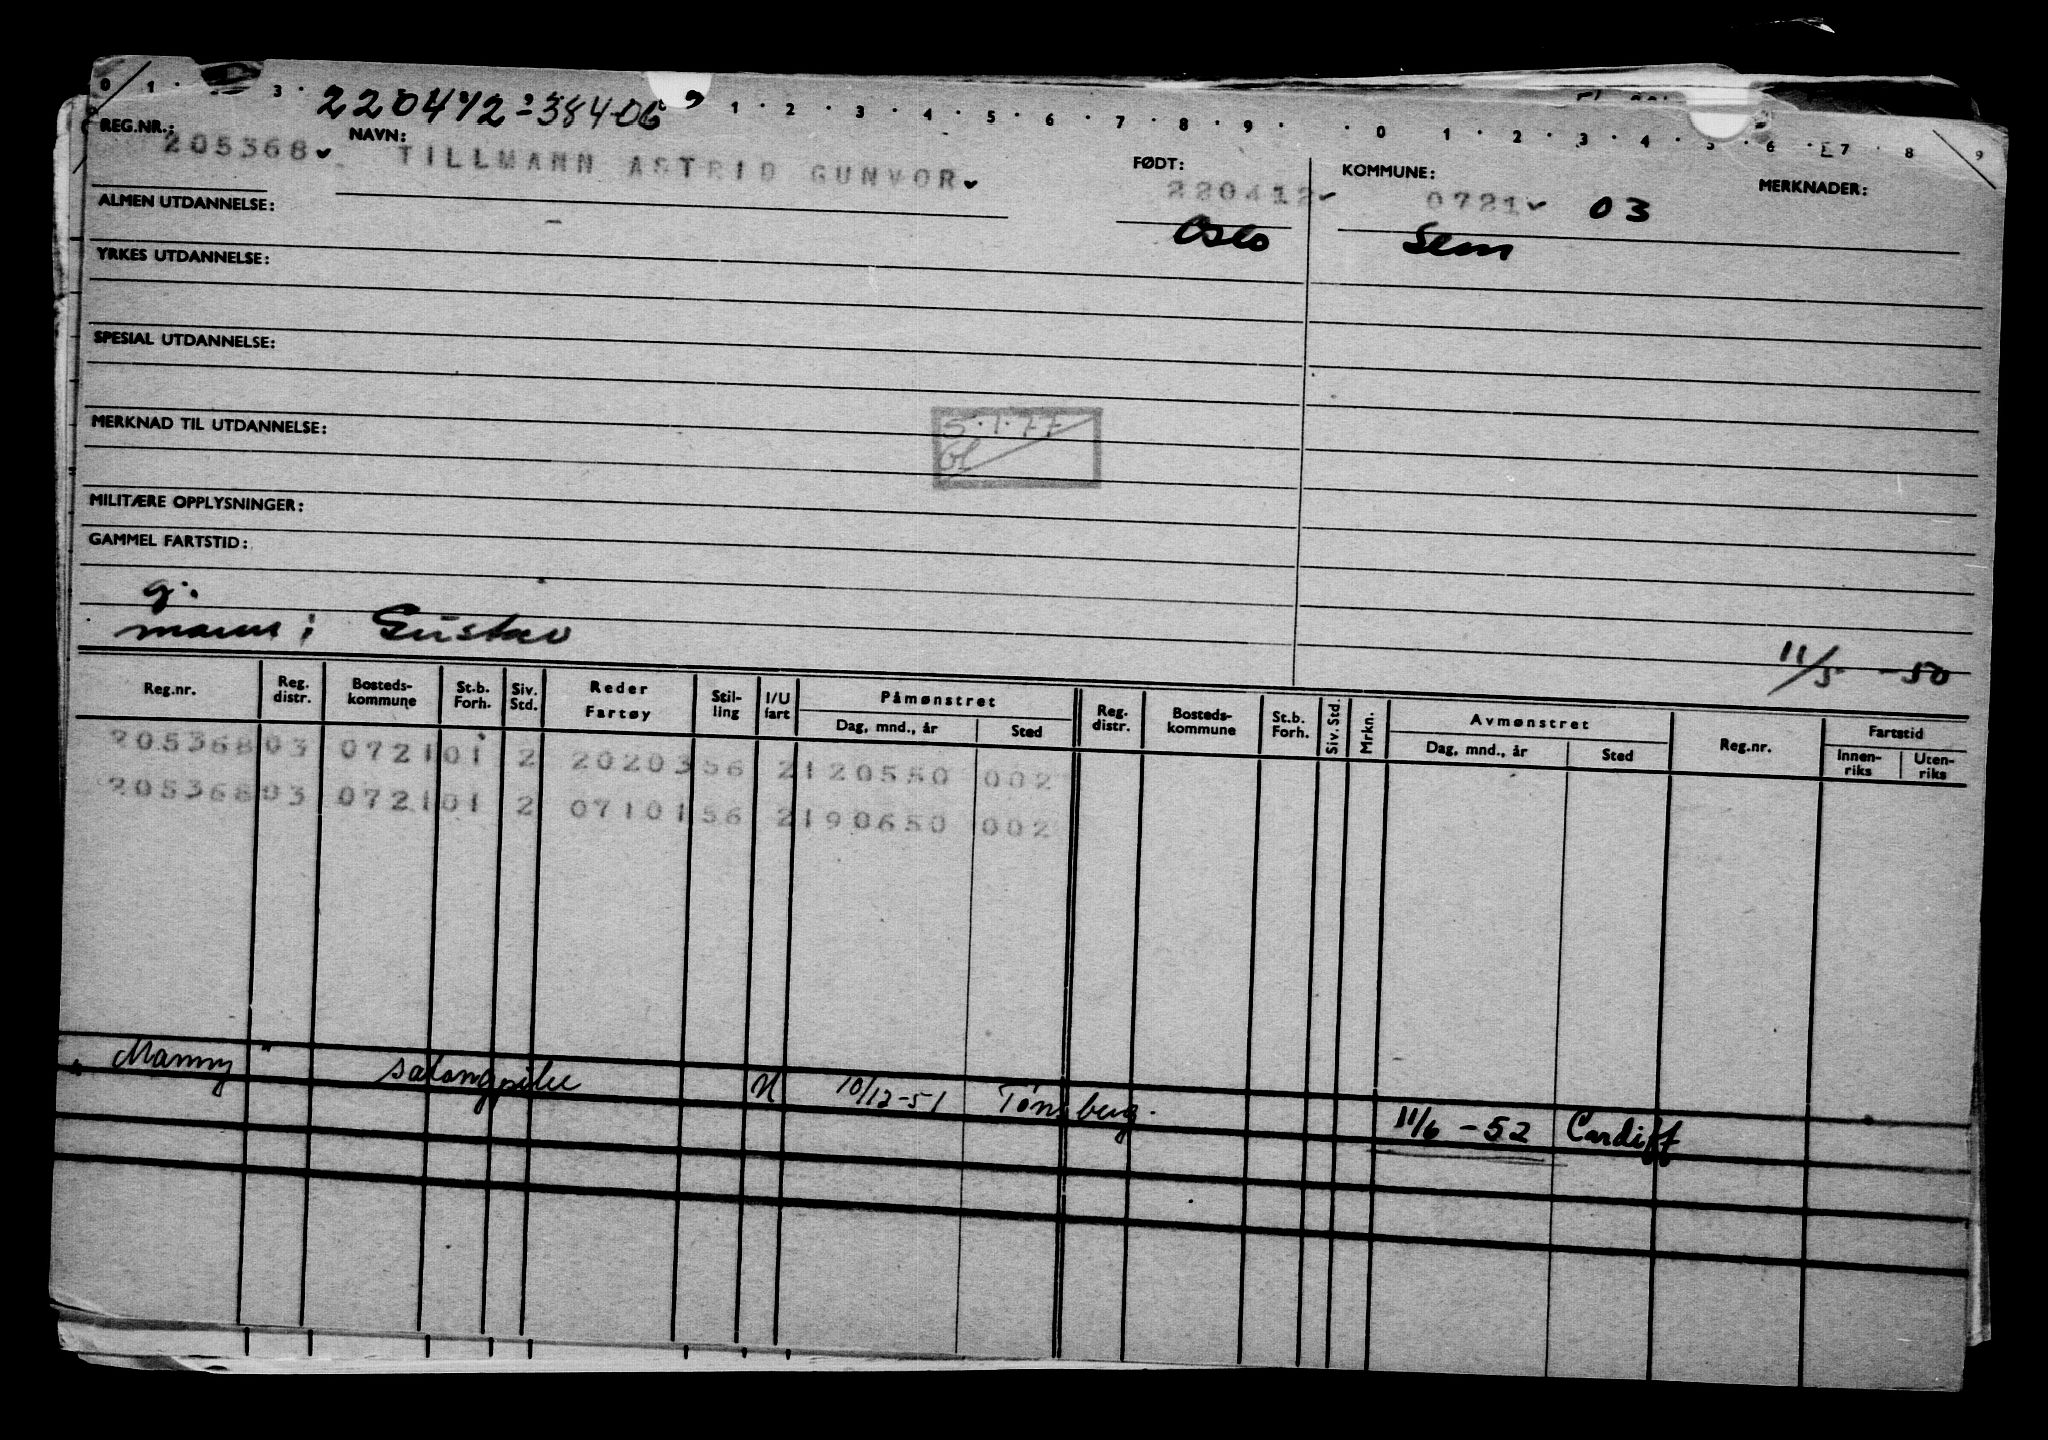 0 1 · 3 · 1 · 2 · 3 · 4 · 5 · 6 · 7 · 8 · 9 · · 0 1 · 2 · 3 · 4 · 5 · 6 · 7 · 8 9
220412-38406
REG.NR.: 205368 NAVN: TILLMANN ASTRID GUNVOR FØDT: 220412 KOMMUNE: 0721 03 MERKNADER:
Oslo Sem
ALMEN UTDANNELSE: -
YRKES UTDANNELSE:
SPESIAL UTDANNELSE:
MERKNAD TIL UTDANNELSE:
5.1.77
MILITÆRE OPPLYSNINGER:
GAMMEL FARTSTID:
g.
mann: Gustav
11/5 - 50
Reg.nr. Reg. distr. Bosteds-kommune St.b. Forh. Siv. Std. Reder Fartøy Stil-ling I/U fart Påmønstret Dag, mnd., år Sted Reg. distr. Bosteds-kommune St.b. Forh. Siv. Std. Mrkn. Avmønstret Dag, mnd., år Sted Reg.nr. Fartstid Innen-riks Uten-riks
205368 03 0721 01 2 20203 56 2 120550 002
205368 03 0721 01 2 07101 56 2 190650 002
"Manny" salongpike U 10/12-51 Tønsberg. 11/6 - 52 Cardiff